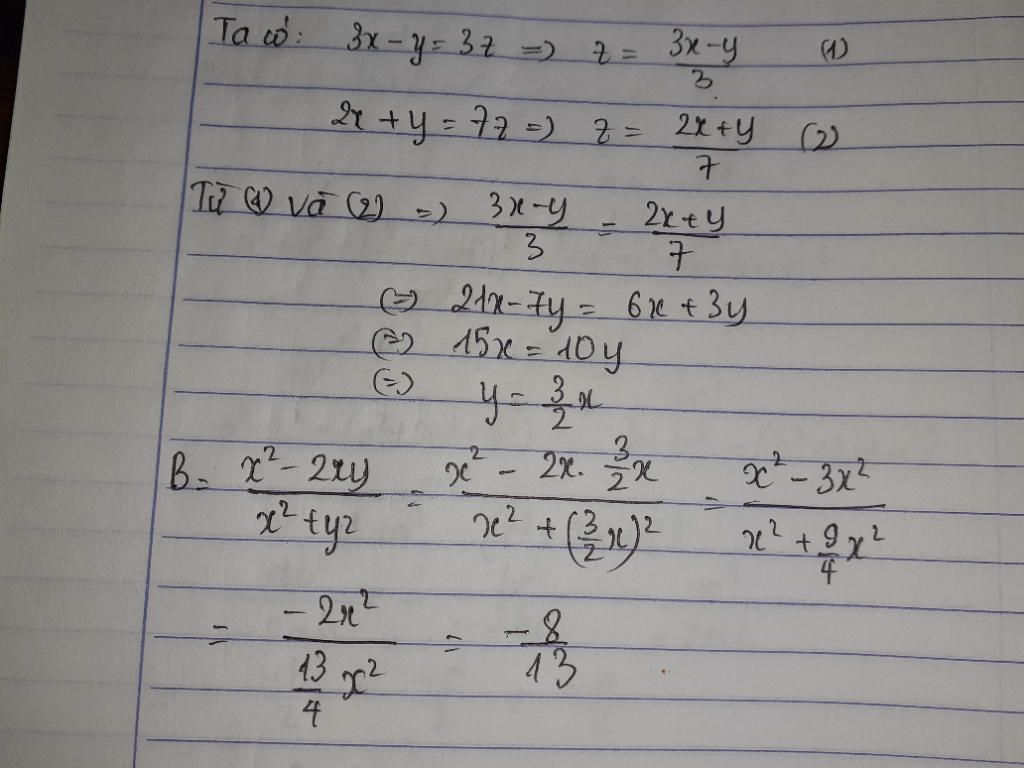 Ta có: 3x - y = 3z => z = (3x-y)/3 (1)
2x + y = 7z => z = (2x+y)/7 (2)
Từ (1) và (2) => (3x-y)/3 = (2x+y)/7
(=) 21x - 7y = 6x + 3y
(=) 15x = 10y
(=) y = 3/2 x
B = (x² - 2xy)/(x² + y²) = (x² - 2x. 3/2 x)/(x² + (3/2 x)²) = (x² - 3x²)/(x² + 9/4 x²)
= (-2x²)/(13/4 x²) = -8/13